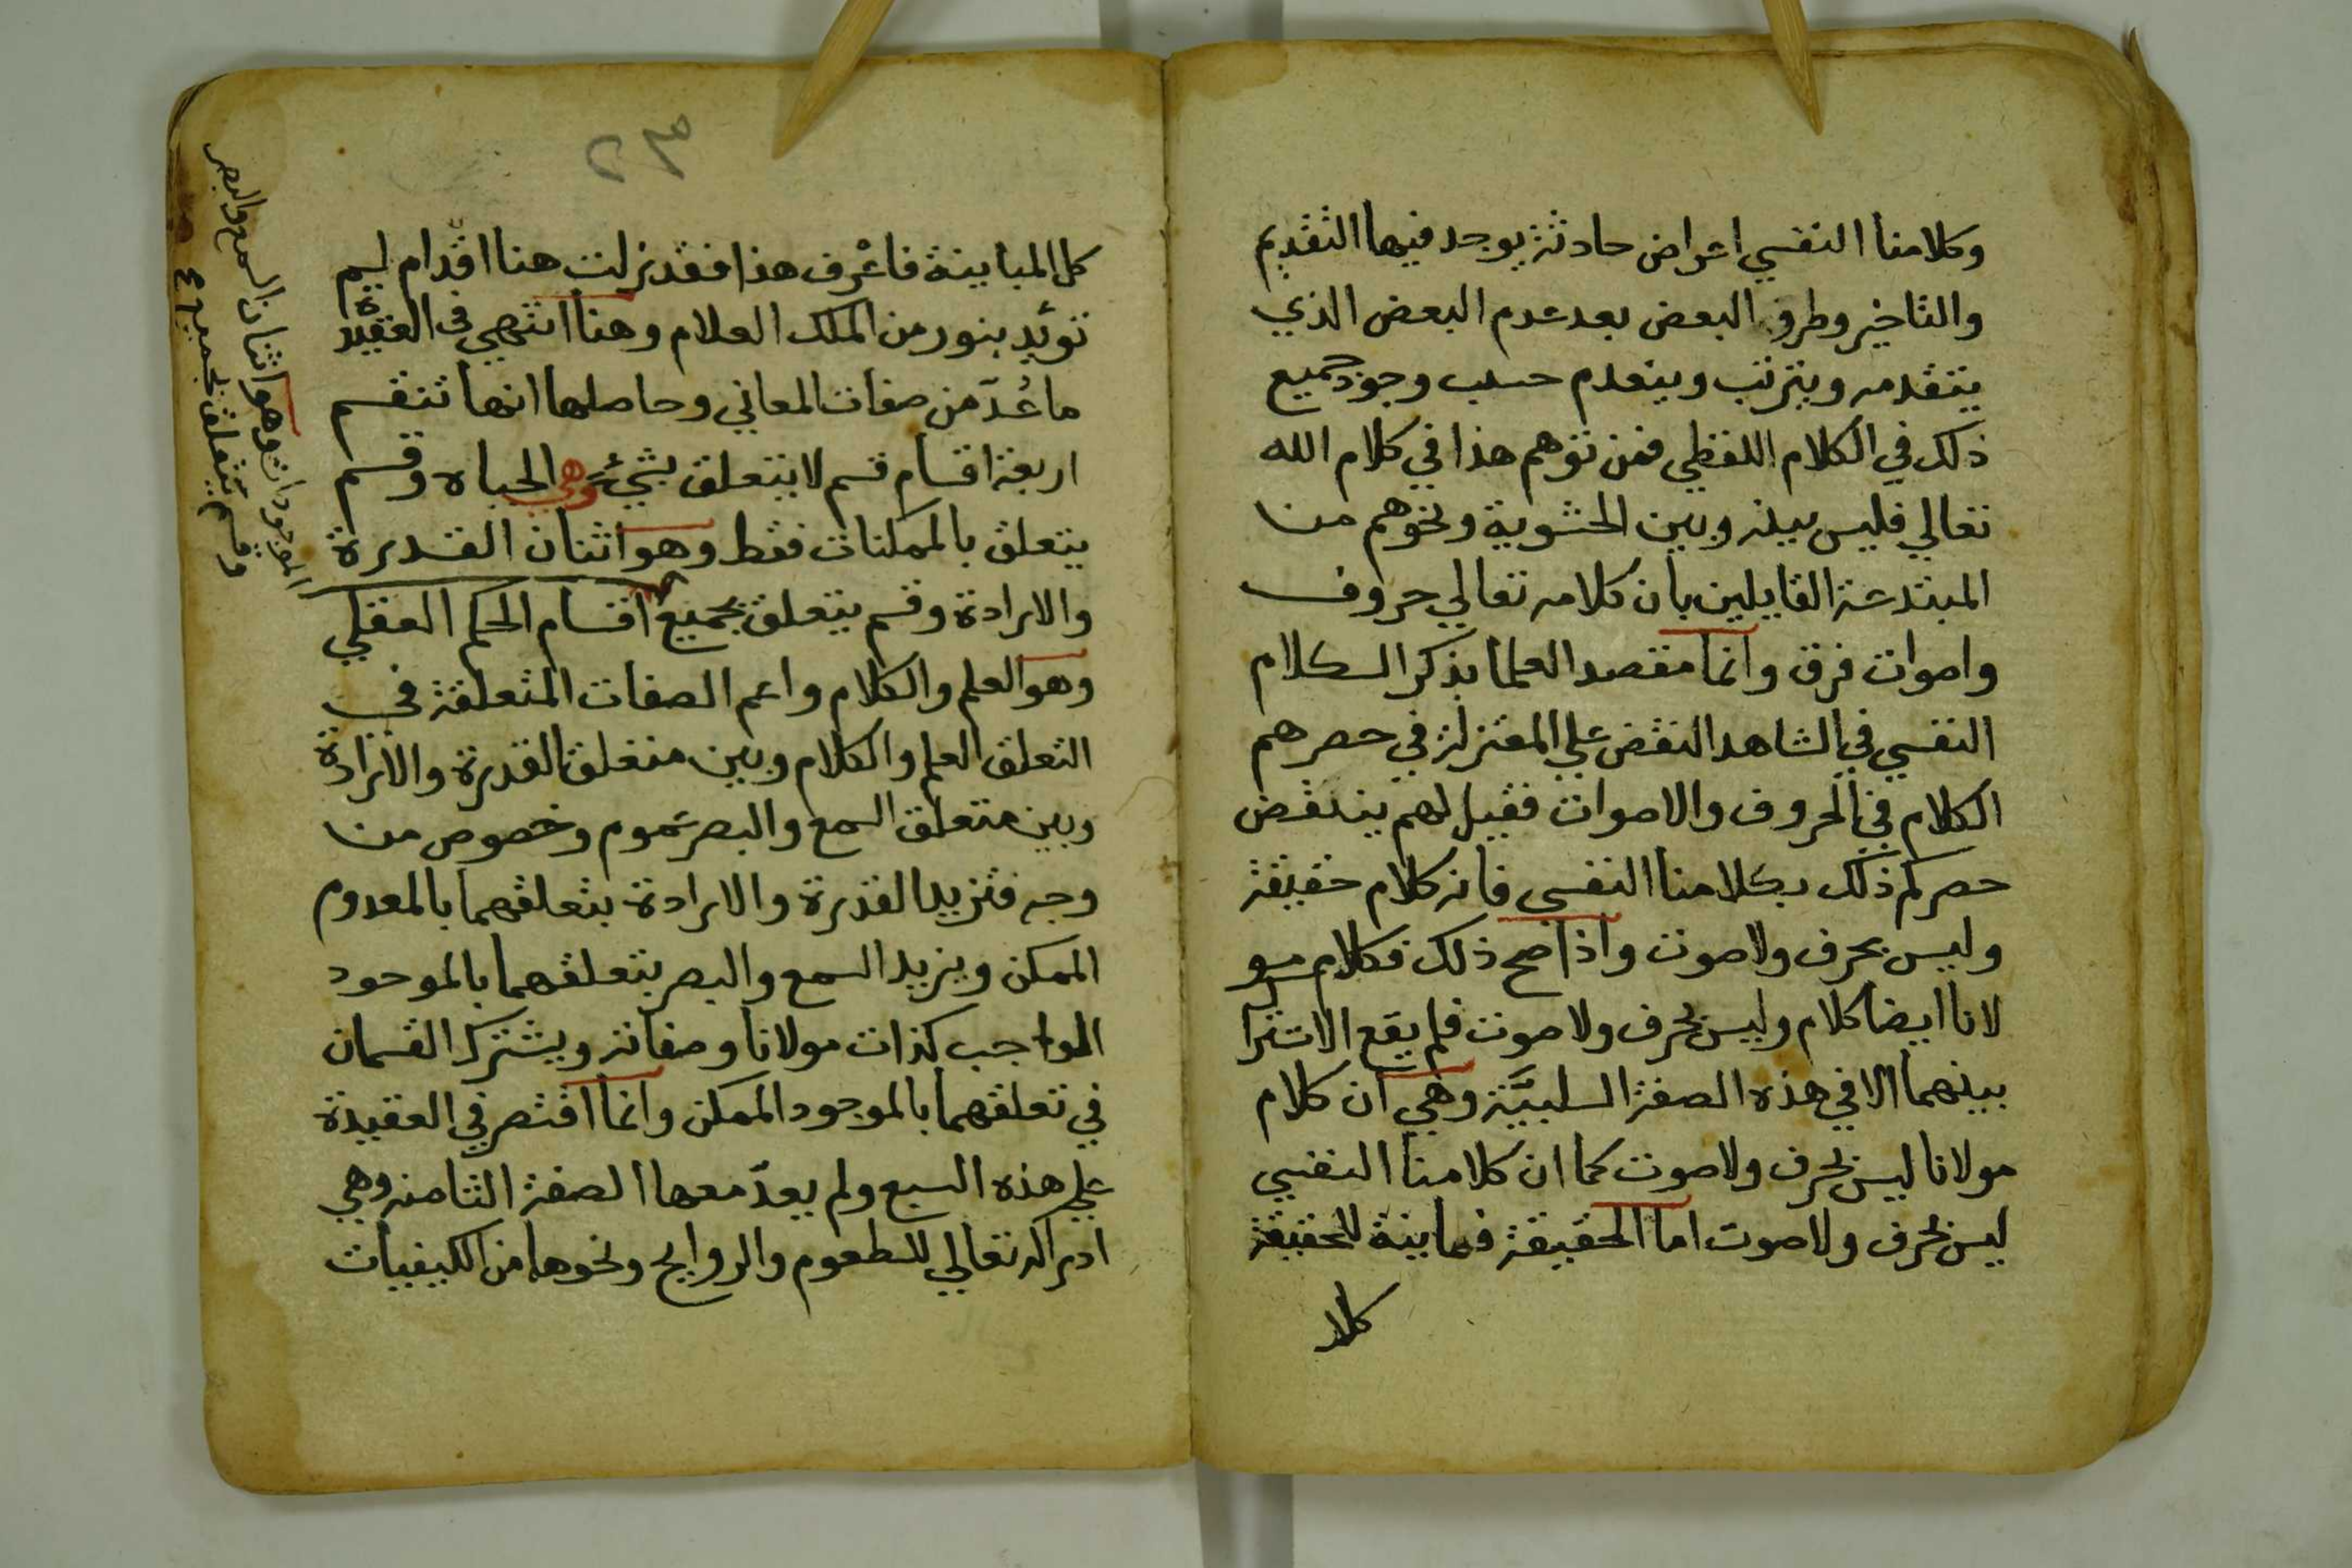 وكلامنا النفسي اعراض حادثة يوجد فيها التقديم
والتاخير وطرو البعض بعد عدم البعض الذي
يتقدمه ويترتب وينعدم حسب وجود جميع
ذلك في الكلام اللفظي فمن توهم هذا في كلام الله
تعالي فليس بينه وبين الحشوية ونحوهم من
المبتدعة القايلين بان كلامه تعالي حروف
واصوات فرق وانما مقصد العلما بذكر الكلام
النفسي في الشاهد النقض علي المعتزلة في حصرهم
الكلام في الحروف والاصوات فقيل لهم ينتقض
حصركم ذلك بكلامنا النفسي فانه كلام حقيقة
وليس بحرف ولا صوت واذا صح ذلك فكلام مو
لانا ايضا كلام وليس بحرف ولا صوت فلم يقع الاشترا
بينهما الا في هذه الصفة السلبيّة وهي ان كلام
مولانا ليس بحرف ولا صوت كما ان كلامنا النفسي
ليس بحرف ولا صوت اما الحقيقة فمباينة للحقيقة
كلا
كل المباينة فاعرف هذا فقد زلت هنا اقدام لم
تؤيد بنور من الملك العلام وهنا انتهي في العقيدة
ما عُدّ من صفات المعاني وحاصلها انها تنقسم
اربعة اقسام قسم لا يتعلق بشيء وهي الحياة وقسم
يتعلق بالممكنات فقط وهو اثنان القدرة
والارادة وقسم يتعلق بجميع اقسام الحكم العقلي
وهو العلم والكلام واعم الصفات المتعلقة في
التعلق العلم والكلام وبين متعلق القدرة والارادة
وبين متعلق السمع والبصر عموم وخصوص من
وجه فتزيد القدرة والارادة بتعلقهما بالمعدوم
الممكن ويزيد السمع والبصر بتعلقهما بالموجود
الواجب كذات مولانا وصفاته ويشترك القسمان
في تعلقهما بالموجود الممكن وانما اقتصر في العقيدة
علي هذه السبع ولم يعدّ معها الصفة الثامنه وهي
ادراكه تعالي للطعوم والروايح ونحوها من الكيفيات
وقسم يتعلق بجميع
الموجودات وهو اثنان السمع والبصر